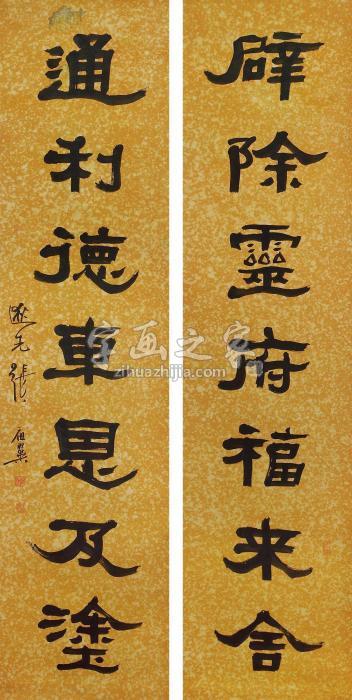 辟除靈府福来舍
通利德車思及塗
字画之家
zihuazhijia.com